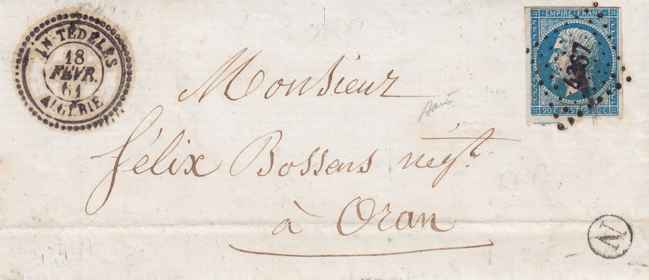 AIN-TEDELES
18
FÉVR.
61
ALGÉRIE
EMPIRE FRANC
4267
Monsieur
Félix Bossens négt.
à Oran
N